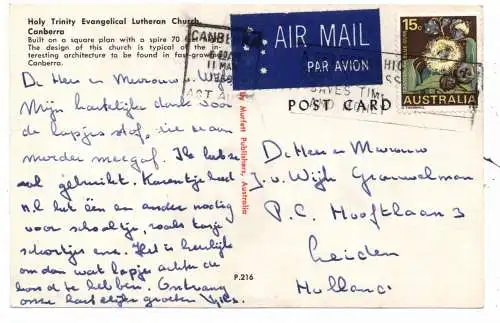 Holy Trinity Evangelical Lutheran Church,
Canberra
Built on a square plan with a spire 70
The design of this church is typical of the in-
teresting architecture to be found in fast-growing
Canberra.
De Heer en Mevrouw v. Wijk
Mijn hartelijke dank voor
de lapjes stof, die u aan
moeder meegaf. Ik heb ze
al gebruikt. Karentje had
n.l. het één en ander nodig
voor schooltje, zoals tasje
schortjes enz. Het is heerlijk
om dan wat lapjes achter de
hand te hebben. Ontvang
onze hartelijke groeten
by Murfett Publishers, Australia
P.216
CANBERRA
1968
ACT AU
AIR MAIL
PAR AVION
SAVES TIME
15c
AUSTRALIA
POST CARD
De Heer en Mevrouw
J. v. Wijk
P.C. Hooftlaan 3
Leiden
Holland.